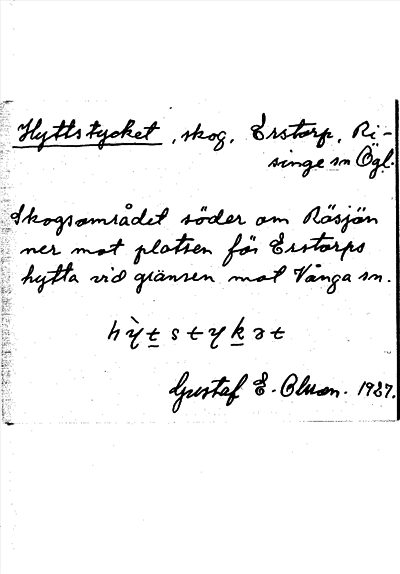 Hyttstycket, skog, Erstorp, Ri-
singe sn Ögl.
Skogsområdet söder om Räsjön
ner mot platsen för Erstorps
hytta vid gränsen mot Vånga sn.
hỳt̲styk̲ət
Gustaf E. Olsson. 1937.